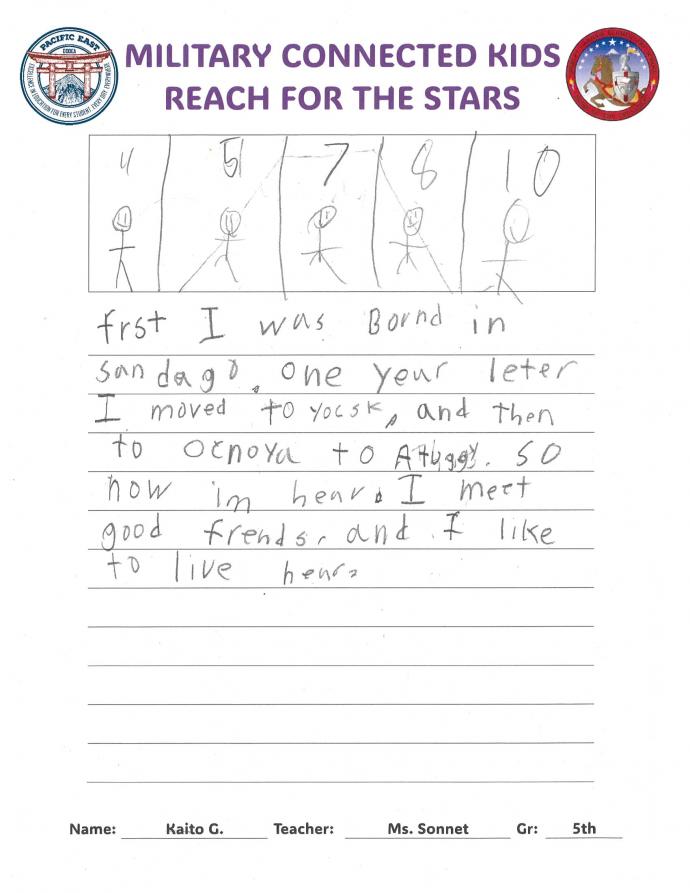 PACIFIC EAST
DODEA
EXCELLENCE IN EDUCATION FOR EVERY STUDENT, EVERY DAY, EVERYWHERE
MILITARY CONNECTED KIDS
REACH FOR THE STARS
4 5 7 8 10
frst I was Bornd in
sandago. one year leter
I moved to yocsk, and then
to ocnoya to . so
now im hear. I meet
good frends. and I like
to live hear.
Name: Kaito G. Teacher: Ms. Sonnet Gr: 5th